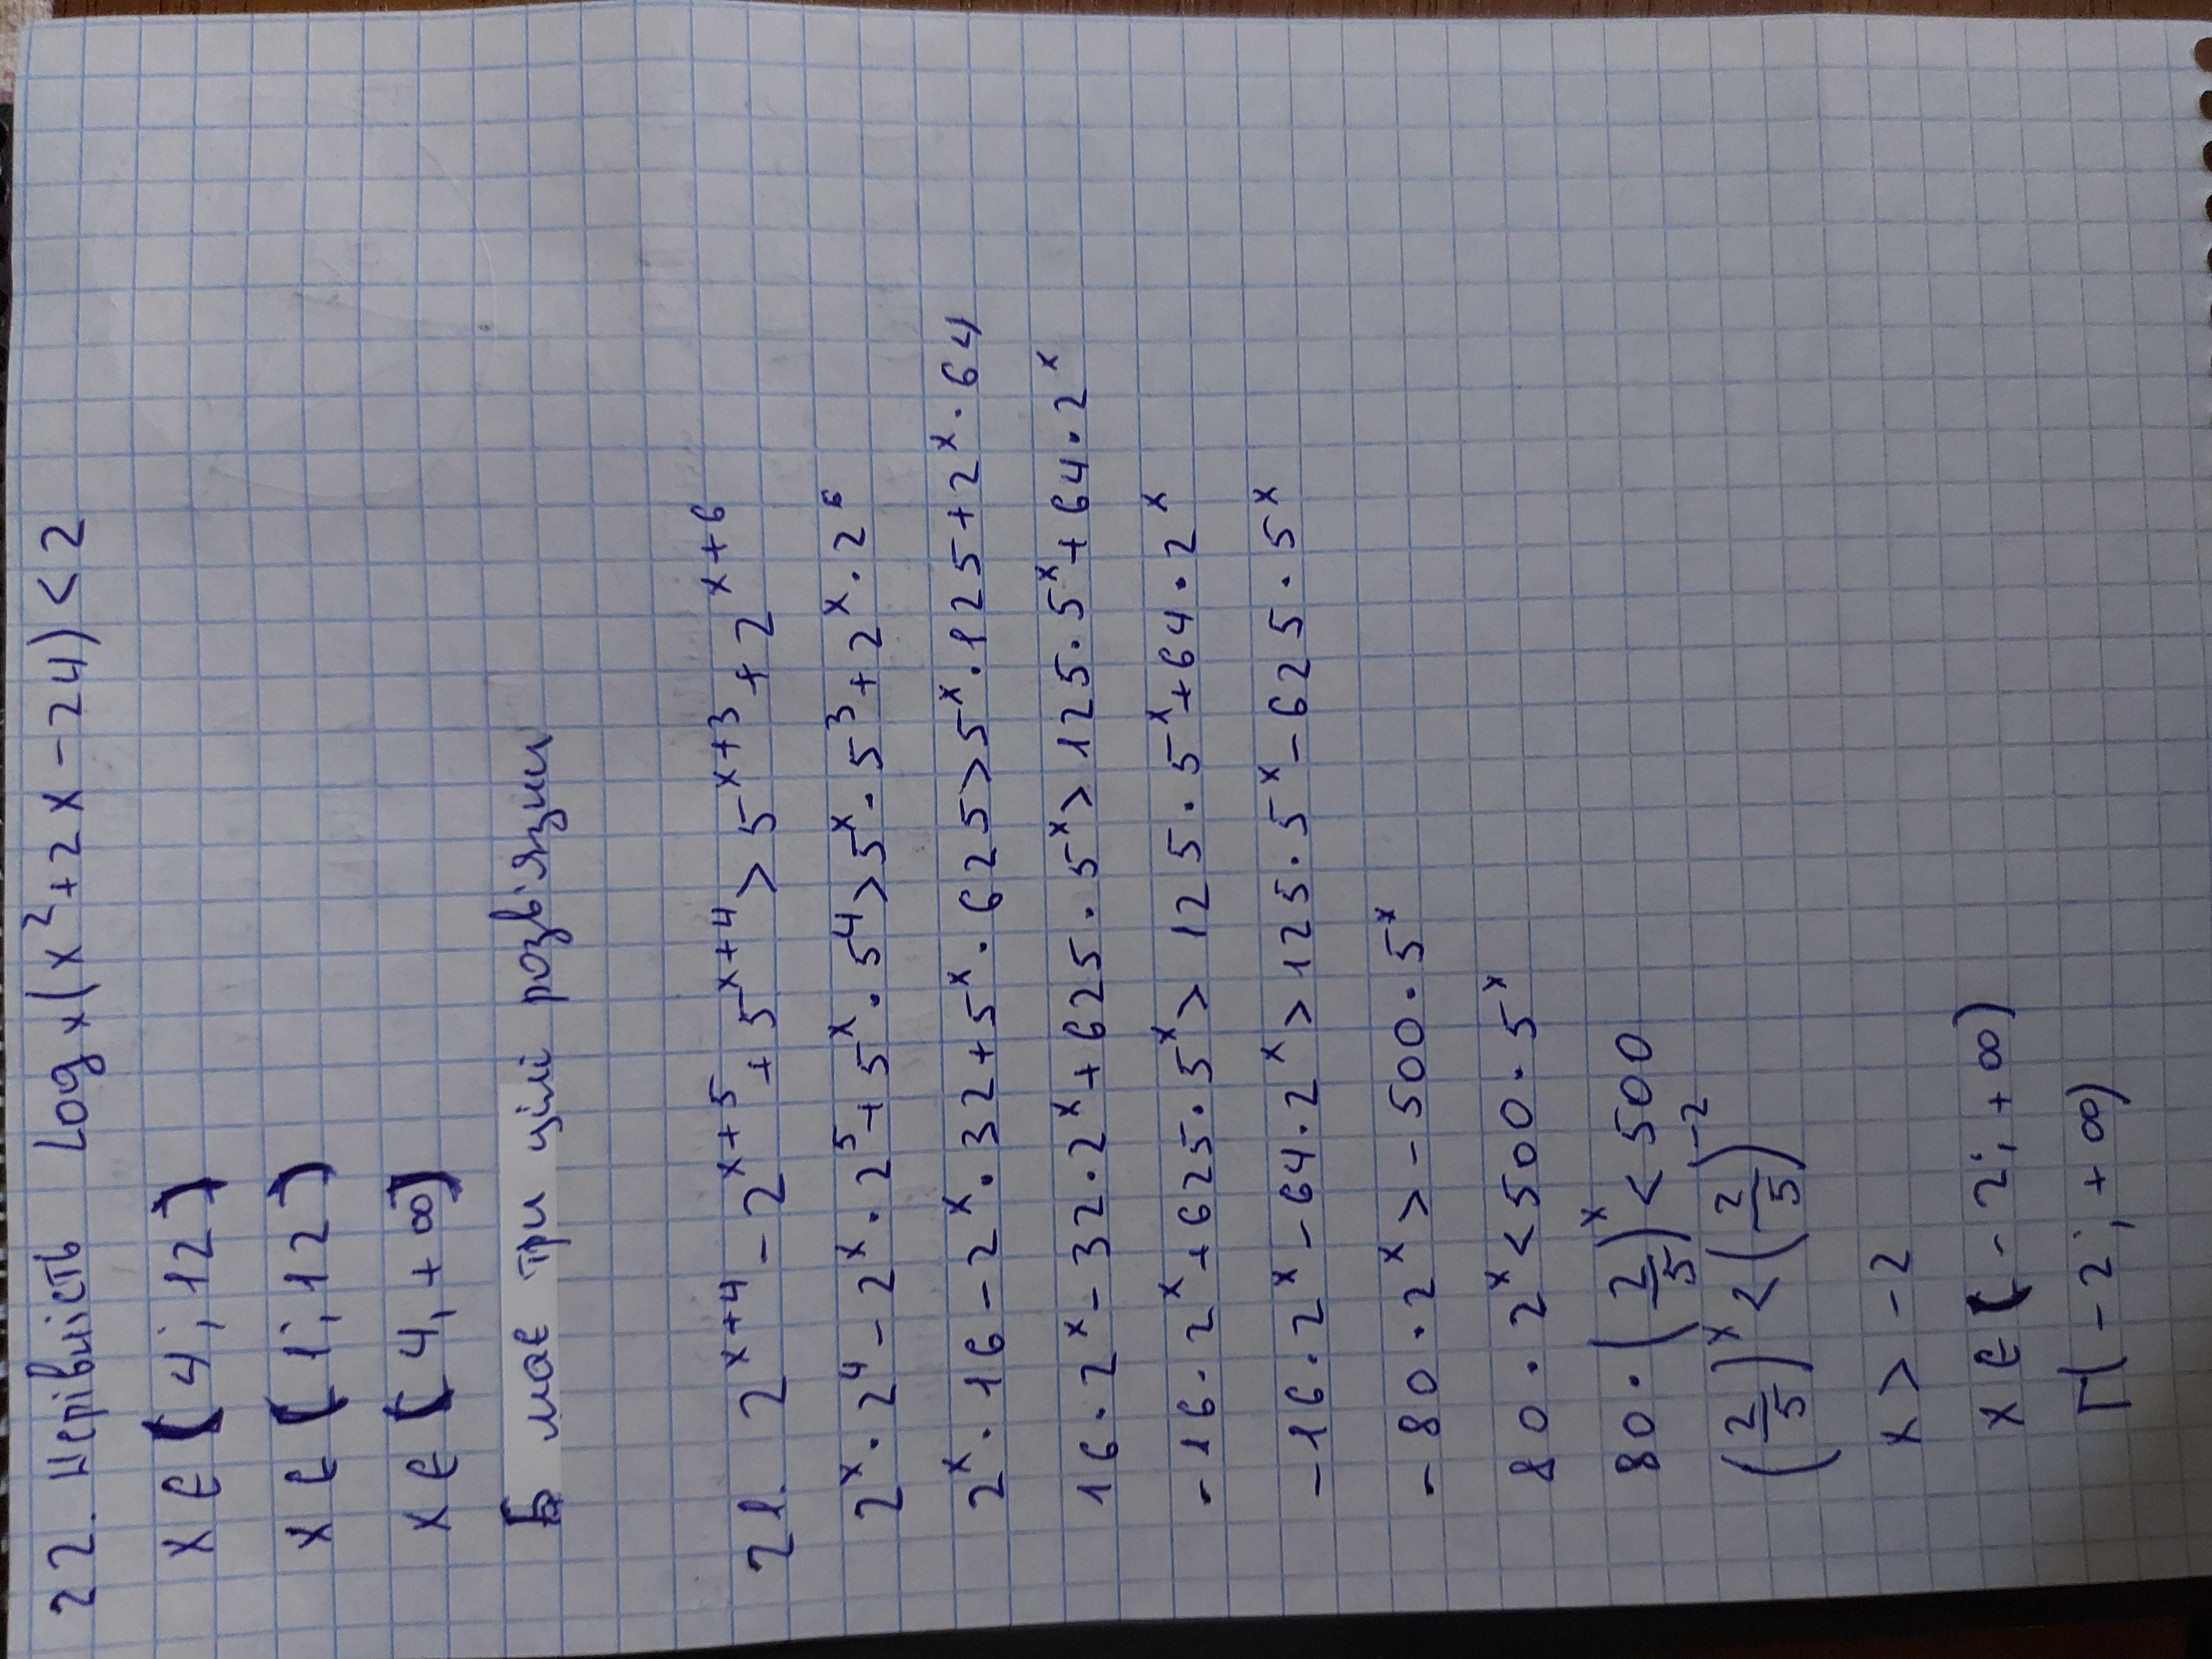 22. Нерівність Log x(x²+2x-24)<2
x ∈ (4; 12)
x ∈ (1; 12)
x ∈ (4, +∞)
Б має три цілі розв'язки
21. 2^(x+4) - 2^(x+5) + 5^(x+4) > 5^(x+3) + 2^(x+6)
2^x · 2⁴ - 2^x · 2⁵ + 5^x · 5⁴ > 5^x · 5³ + 2^x · 2⁶
2^x · 16 - 2^x · 32 + 5^x · 625 > 5^x · 125 + 2^x · 64
16 · 2^x - 32 · 2^x + 625 · 5^x > 125 · 5^x + 64 · 2^x
-16 · 2^x + 625 · 5^x > 125 · 5^x + 64 · 2^x
-16 · 2^x - 64 · 2^x > 125 · 5^x - 625 · 5^x
-80 · 2^x > -500 · 5^x
80 · 2^x < 500 · 5^x
80 · (2/5)^x < 500
(2/5)^x < (2/5)^-2
x > -2
x ∈ (-2; +∞)
Г(-2; +∞)